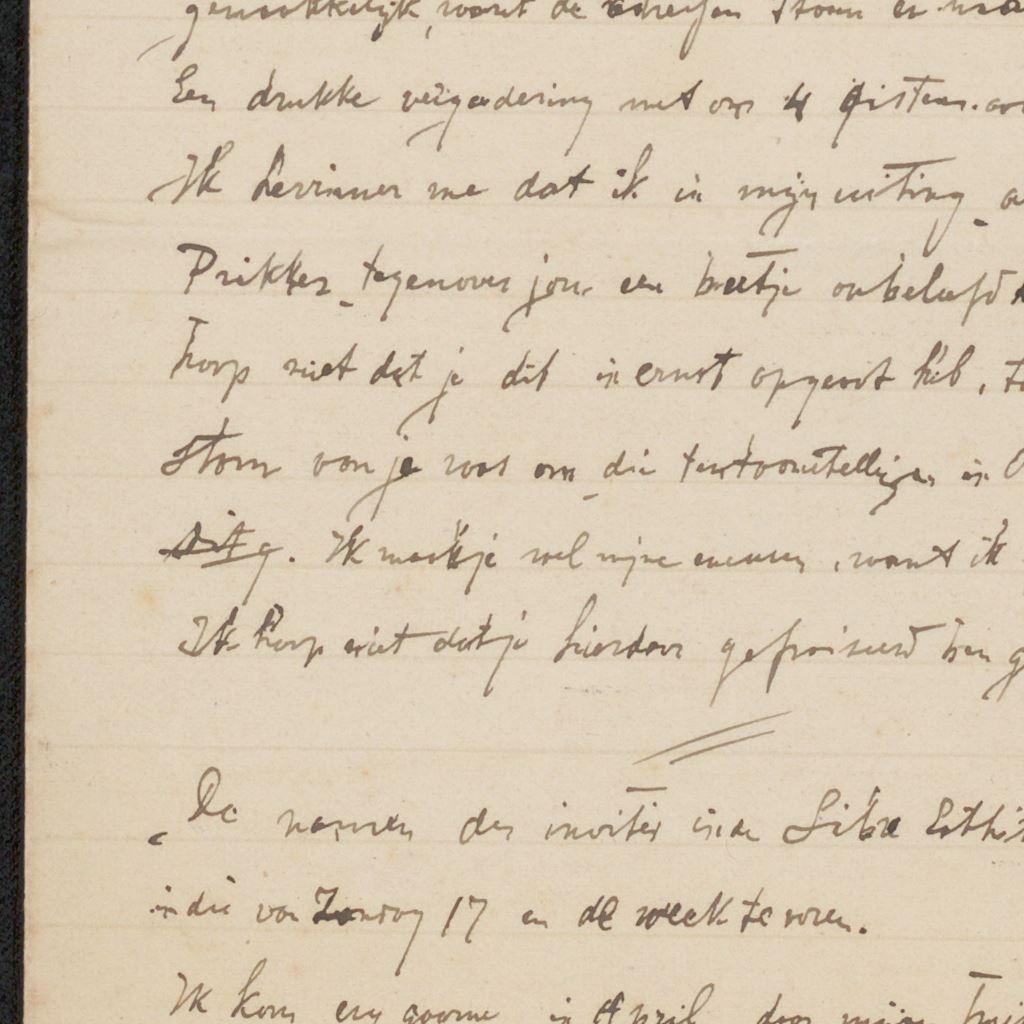 gemakkelijk, want de scherpen staan er
Een drukke vergadering met ons 4 gisteren
Ik herinner me dat ik in mijn uiting
Prikker tegenover jou een beetje onbeleefd
hoop niet dat je dit in ernst opgevat heb,
stom van je was om die tentoonstellingen in
Ik maak je wel mijne excuses, want ik
Ik hoop niet dat je hierdoor gefroisseerd ben
De namen der invités in de Libre Esthé
in die van Zondag 17 en de week te voren.
Ik kom erg gaarne in April door mijn